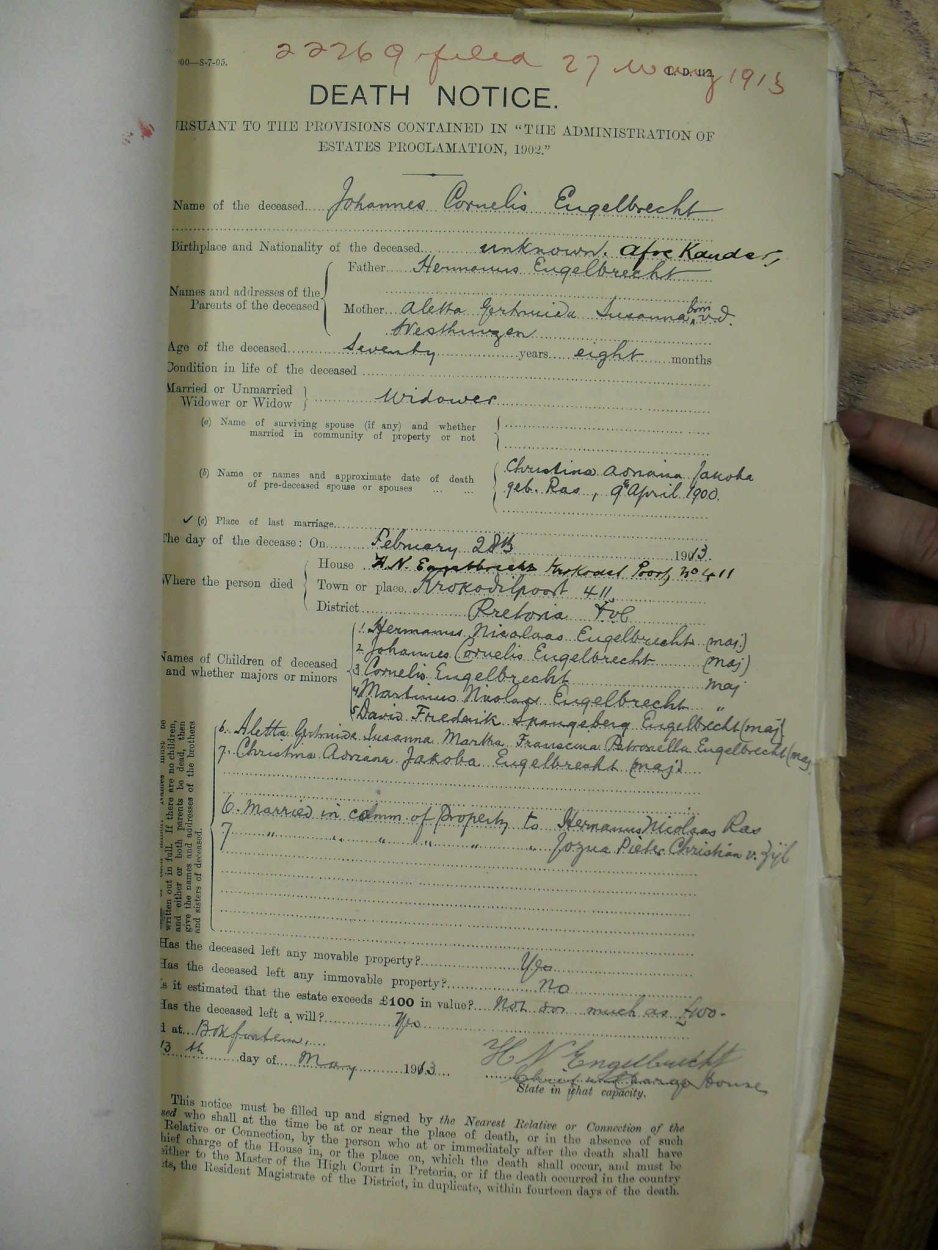 00—8-7-05.
22269 filed 27 May 1913
DEATH NOTICE.
RSUANT TO THE PROVISIONS CONTAINED IN "THE ADMINISTRATION OF
ESTATES PROCLAMATION, 1902."
Name of the deceased Johannes Cornelis Engelbrecht
Birthplace and Nationality of the deceased unknown. Afrc Kander,
Names and addresses of the Parents of the deceased
Father Hermanus Engelbrecht
Mother Aletta Gertruida Susanna born v.d.
Westhuizen
Age of the deceased Seventy years eight months
Condition in life of the deceased
Married or Unmarried
Widower or Widow Widower
(a) Name of surviving spouse (if any) and whether
married in community of property or not
(b) Name or names and approximate date of death
of pre-deceased spouse or spouses
Christina Adriana Jakoba
geb. Ras, 9th April 1900.
✓ (c) Place of last marriage
The day of the decease: On February 28th 1913.
Where the person died
House H.N. Engelbrecht Krokodil Poort No 411
Town or place Krokodilpoort 411
District Pretoria Tvl
Names of Children of deceased
and whether majors or minors
1. Hermanus Nicolaas Engelbrecht (maj.)
2. Johannes Cornelis Engelbrecht (maj)
3 Cornelis Engelbrecht maj
4 Martinus Nicolaas Engelbrecht "
5 David Frederik Spangeberg Engelbrecht (maj)
6. Aletta Gertruida Susanna Martha Francina Petronella Engelbrecht (maj
7. Christina Adriana Jakoba Engelbrecht (maj)
written out in full. If there are no children,
and either or both parents be dead, then
give the names and addresses of the brothers
and sisters of deceased.
6. Married in comm of Property to Hermanus Nicolaas Ras
7 " " " " " Jozua Pieter Christian v. Zijl
Has the deceased left any movable property? Yes
Has the deceased left any immovable property? No
s it estimated that the estate exceeds £100 in value? Not so much as £100-
Has the deceased left a will? Yes
d at Bokfontein,
13th day of May 1913
H N Engelbrecht
Chief in Charge House
State in what capacity.
This notice must be filled up and signed by the Nearest Relative or Connection of the
sed who shall at the time be at or near the place of death, or in the absence of such
Relative or Connection, by the person who at or immediately after the death shall have
hief charge of the House in, or the place on, which the death shall occur, and must be
either to the Master of the High Court in Pretoria, or if the death occurred in the country
ts, the Resident Magistrate of the District, in duplicate, within fourteen days of the death.